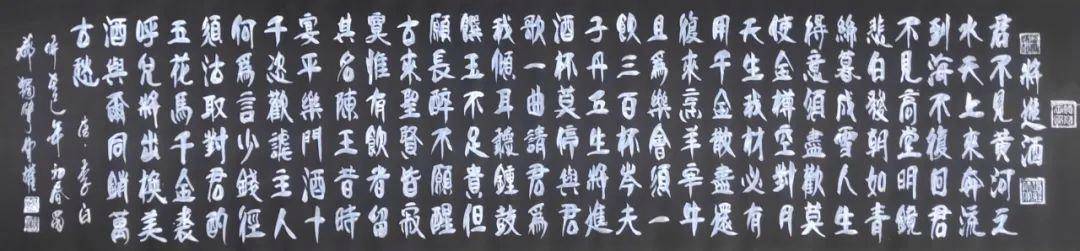 將進酒
君不見黃河之
水天上來奔流
到海不復回君
不見高堂明鏡
悲白髮朝如青
絲暮成雪人生
得意須盡歡莫
使金樽空對月
天生我材必有
用千金散盡還
復來烹羊宰牛
且爲樂會須一
飲三百杯岑夫
子丹丘生將進
酒杯莫停與君
歌一曲請君爲
我傾耳聽鐘鼓
饌玉不足貴但
願長醉不願醒
古來聖賢皆寂
寞惟有飲者留
其名陳王昔時
宴平樂門酒十
千恣歡謔主人
何爲言少錢徑
須沽取對君酌
五花馬千金裘
呼兒將出換美
酒與爾同銷萬
古愁
唐·李白
巳年初春